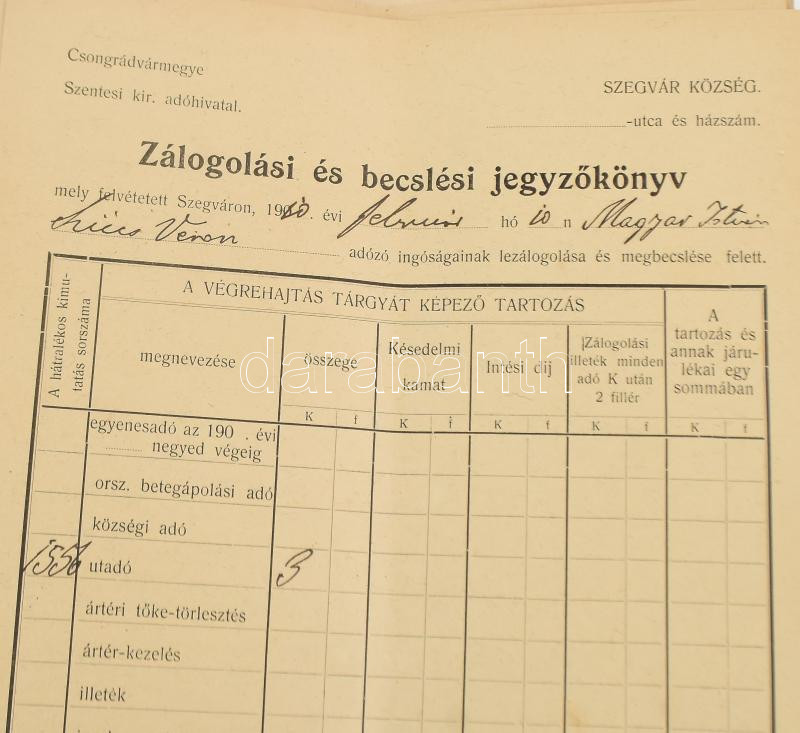 Csongrádvármegye
Szentesi kir. adóhivatal.
SZEGVÁR KÖZSÉG.
-utca és házszám.
Zálogolási és becslési jegyzőkönyv
mely felvétetett Szegváron, 1910. évi február hó 10 n Magyar István
Szücs Veron adózó ingóságainak lezálogolása és megbecslése felett.
A hátralékos kimu-
tatás sorszáma
A VÉGREHAJTÁS TÁRGYÁT KÉPEZŐ TARTOZÁS
megnevezése
összege
Késedelmi
kamat
Intési díj
Zálogolási
illeték minden
adó K után
2 fillér
A
tartozás és
annak járu-
lékai egy
sommában
K f K f K f K f K f
egyenesadó az 190 . évi
negyed végeig
orsz. betegápolási adó
községi adó
1556 utadó 3
ártéri tőke-törlesztés
ártér-kezelés
illeték
darabanth